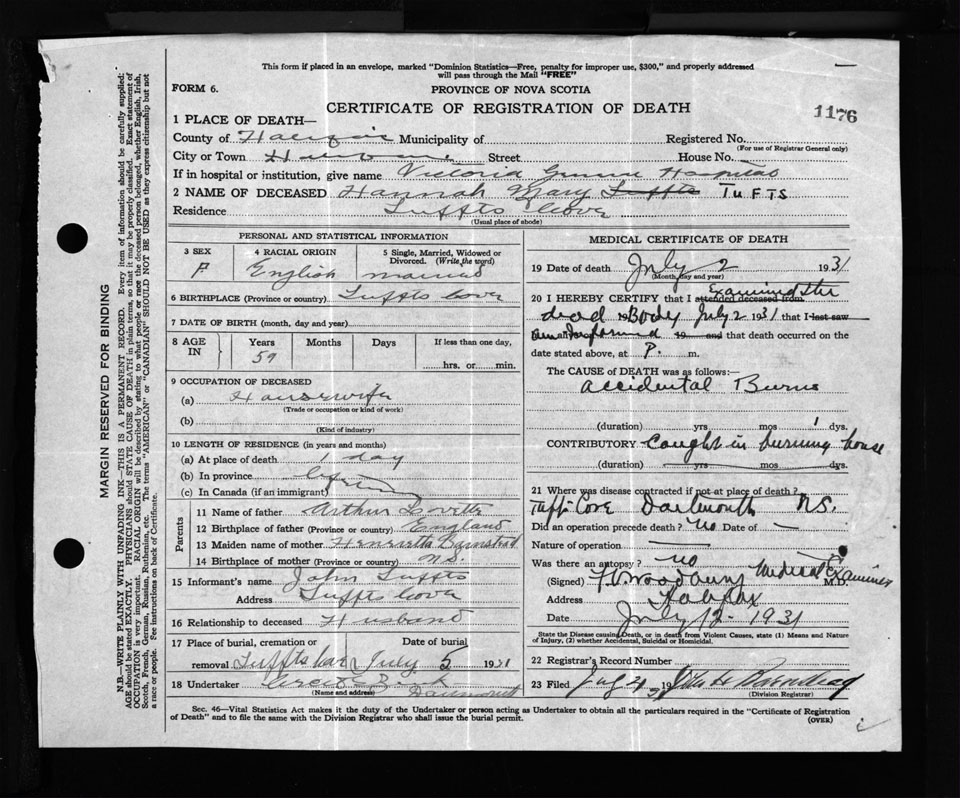 This form if placed in an envelope, marked "Dominion Statistics—Free, penalty for improper use, $300," and properly addressed
will pass through the Mail "FREE"
FORM 6.
PROVINCE OF NOVA SCOTIA
CERTIFICATE OF REGISTRATION OF DEATH
1176
1 PLACE OF DEATH—
County of Halifax Municipality of Registered No.
(For use of Registrar General only)
City or Town Street House No.
If in hospital or institution, give name Victoria General Hospital
2 NAME OF DECEASED Hannah Mary Tuffts TUFTS
Residence Tuffts Cove
(Usual place of abode)
PERSONAL AND STATISTICAL INFORMATION
3 SEX 4 RACIAL ORIGIN 5 Single, Married, Widowed or
Divorced. (Write the word)
F English married
6 BIRTHPLACE (Province or country) Tuffts Cove
7 DATE OF BIRTH (month, day and year)
8 AGE IN Years Months Days If less than one day,
59
hrs. or min.
9 OCCUPATION OF DECEASED
(a) Housewife
(Trade or occupation or kind of work)
(b)
(Kind of industry)
10 LENGTH OF RESIDENCE (in years and months)
(a) At place of death 1 day
(b) In province lifetime
(c) In Canada (if an immigrant)
Parents
11 Name of father Arthur Lovette
12 Birthplace of father (Province or country) England
13 Maiden name of mother Henrietta
14 Birthplace of mother (Province or country) N.S.
15 Informant's name John Tuffts
Address Tuffts Cove
16 Relationship to deceased Husband
17 Place of burial, cremation or Date of burial
removal Tuffts Cove July 5 1931
18 Undertaker
(Name and address)
MEDICAL CERTIFICATE OF DEATH
19 Date of death July 2 1931
(Month, day and year)
20 I HEREBY CERTIFY that I attended deceased from Examined the
dead 19 Body July 2 1931 that I last saw
informed 19 and that death occurred on the
date stated above, at P. m.
The CAUSE of DEATH was as follows:—
accidental Burns
(duration) yrs mos 1 dys.
CONTRIBUTORY Caught in burning house
(duration) yrs mos dys.
21 Where was disease contracted if not at place of death?
Tuffts Cove Dartmouth N.S.
Did an operation precede death? no Date of —
Nature of operation —
Was there an autopsy? no
(Signed) Medical Examiner M.D.
Address Halifax
Date July 12 1931
State the Disease causing Death, or in death from Violent Causes, state (1) Means and Nature
of Injury, (2) whether Accidental, Suicidal or Homicidal.
22 Registrar's Record Number
23 Filed 19
(Division Registrar)
Sec. 46—Vital Statistics Act makes it the duty of the Undertaker or person acting as Undertaker to obtain all the particulars required in the "Certificate of Registration
of Death" and to file the same with the Division Registrar who shall issue the burial permit.
(OVER)
MARGIN RESERVED FOR BINDING
N.B.—WRITE PLAINLY WITH UNFADING INK—THIS IS A PERMANENT RECORD. Every item of information should be carefully supplied:
AGE should be stated EXACTLY. PHYSICIANS should STATE CAUSE OF DEATH in plain terms, so that it may be properly classified. Exact statement of
OCCUPATION is very important. RACIAL ORIGIN will be described by stating to what people or race the deceased person belonged, whether English, Irish,
Scotch, French, German, Russian, Ruthenian, etc. The terms "AMERICAN" or "CANADIAN" SHOULD NOT BE USED as they express citizenship but not
a race or people. See instructions on back of Certificate.